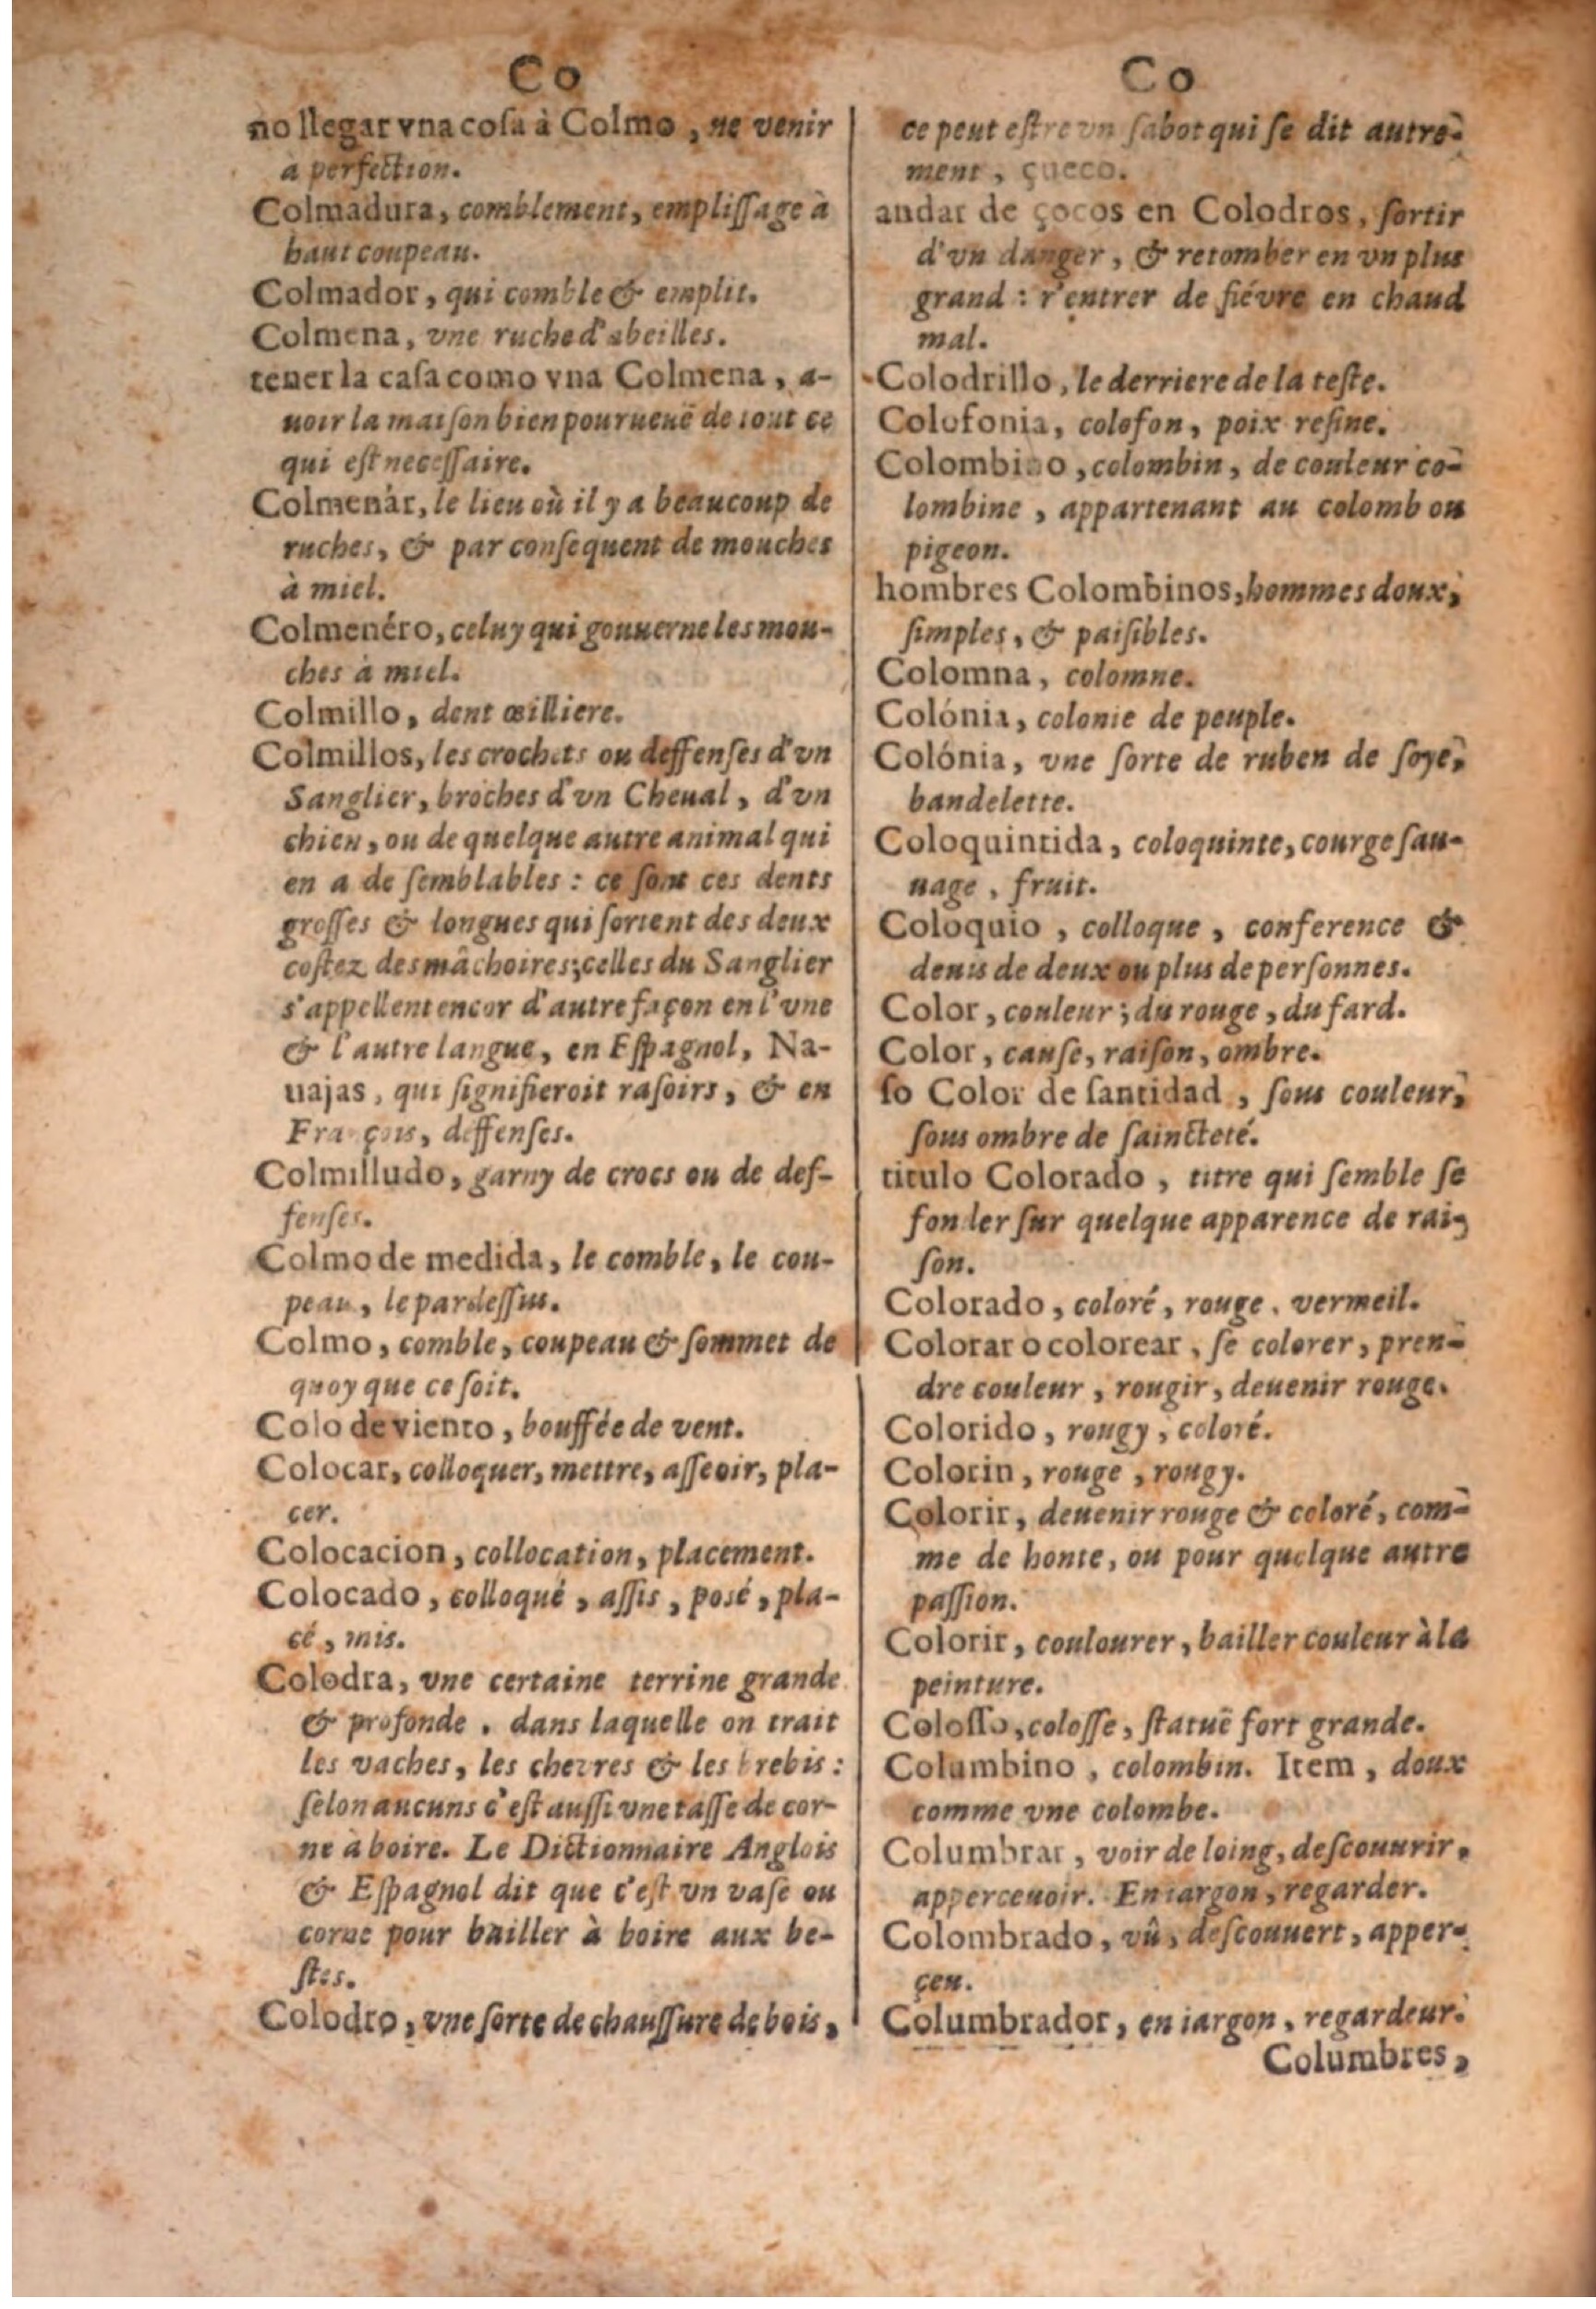 Co
no llegar vna coſa à Colmo, ne venir
a perfection.
Colmadura, comblement, empliſſage à
haut coupeau.
Colmador, qui comble & emplit.
Colmena, vne ruche d'abeilles.
tener la caſa como vna Colmena, a-
uoir la maiſon bien pourueuë de tout ce
qui eſt neceſſaire.
Colmenàr, le lieu où il y a beaucoup de
ruches, & par conſequent de mouches
à miel.
Colmenéro, celuy qui gouuerne les mou-
ches à miel.
Colmillo, dent œilliere.
Colmillos, les crochets ou deffenſes d'vn
Sanglier, broches d'vn Cheual, d'vn
chien, ou de quelque autre animal qui
en a de ſemblables : ce ſont ces dents
groſſes & longues qui ſortent des deux
coſtez des mâchoires; celles du Sanglier
s'appellent encor d'autre façon en l'vne
& l'autre langue, en Eſpagnol, Na-
uajas, qui ſignifieroit raſoirs, & en
François, deffenſes.
Colmilludo, garny de crocs ou de def-
fenſes.
Colmo de medida, le comble, le cou-
peau, le pardeſſus.
Colmo, comble, coupeau & ſommet de
quoy que ce ſoit.
Colo de viento, bouffée de vent.
Colocar, colloquer, mettre, aſſeoir, pla-
cer.
Colocacion, collocation, placement.
Colocado, colloqué, aſſis, posé, pla-
cé, mis.
Colodra, vne certaine terrine grande
& profonde, dans laquelle on trait
les vaches, les chevres & les brebis :
ſelon aucuns c'eſt auſſi vne taſſe de cor-
ne à boire. Le Dictionnaire Anglois
& Eſpagnol dit que c'eſt vn vaſe ou
corne pour bailler à boire aux be-
ſtes.
Colodro, vne ſorte de chauſſure de bois,
Co
ce peut eſtre vn ſabot qui ſe dit autre-
ment, çueco.
andar de çocos en Colodros, ſortir
d'vn danger, & retomber en vn plus
grand : r'entrer de fiévre en chaud
mal.
Colodrillo, le derriere de la teſte.
Colofonia, colofon, poix reſine.
Colombino, colombin, de couleur co-
lombine, appartenant au colomb ou
pigeon.
hombres Colombinos, hommes doux,
ſimples, & paiſibles.
Colomna, colomne.
Colónia, colonie de peuple.
Colónia, vne ſorte de ruben de ſoye,
bandelette.
Coloquintida, coloquinte, courge ſau-
uage, fruit.
Coloquio, colloque, conference &
deuis de deux ou plus de perſonnes.
Color, couleur; du rouge, du fard.
Color, cauſe, raiſon, ombre.
ſo Color de ſantidad, ſous couleur,
ſous ombre de ſaincteté.
titulo Colorado, titre qui ſemble ſe
fonder ſur quelque apparence de rai-
ſon.
Colorado, coloré, rouge, vermeil.
Colorar o colorear, ſe colorer, pren-
dre couleur, rougir, deuenir rouge.
Colorido, rougy, coloré.
Colorin, rouge, rougy.
Colorir, deuenir rouge & coloré, com-
me de honte, ou pour quelque autre
paſſion.
Colorir, coulourer, bailler couleur à la
peinture.
Coloſſo, coloſſe, ſtatuë fort grande.
Columbino, colombin. Item, doux
comme vne colombe.
Columbrar, voir de loing, deſcouurir,
apperceuoir. En iargon, regarder.
Colombrado, vû, deſcouuert, apper-
çeu.
Columbrador, en iargon, regardeur.
Columbres,